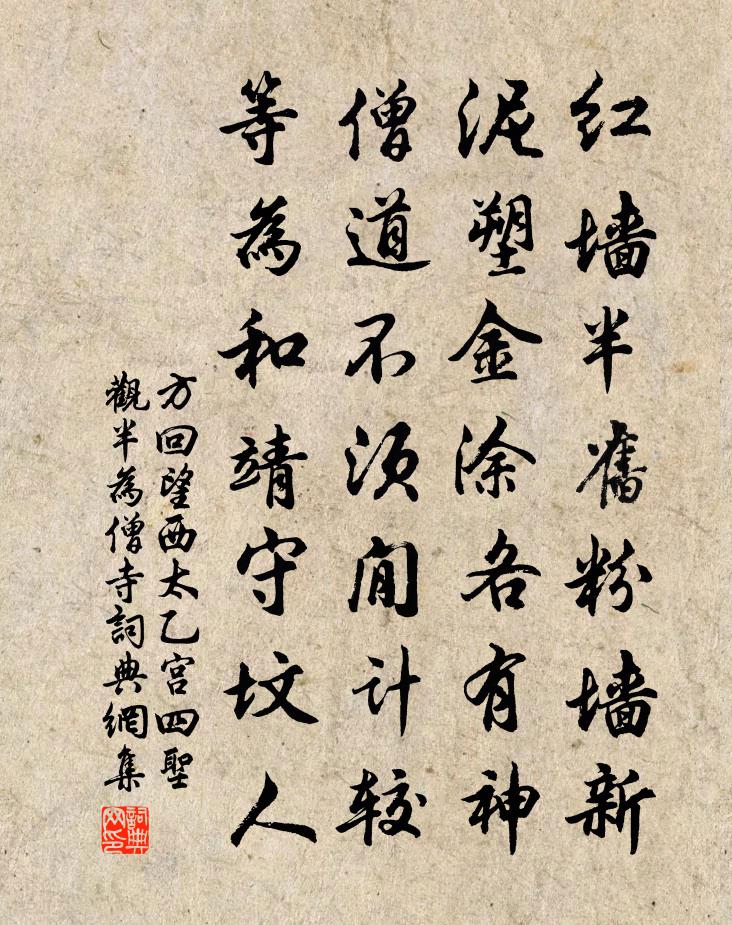 红墙半舊粉墙新
泥塑金涂各有神
僧道不须闲计较
等為和靖守坟人
方回望西太乙宫四聖
觀半為僧寺詞典網集
詞典
网印